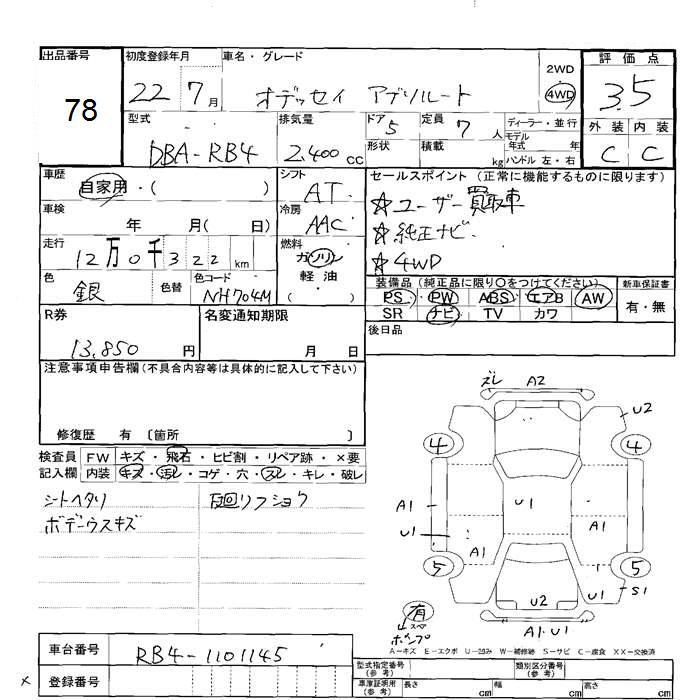 出品番号
78
初度登録年月
22 7月
車名・グレード
オデッセイ アブソルート
2WD
4WD
評価点
3.5
外装 内装
C C
型式
DBA-RB4
排気量
2.400cc
ドア 5
形状
定員 7人
積載 kg
ディーラー・並行
モデル
年式 年
ハンドル 左・右
車歴
自家用・( )
シフト
AT
セールスポイント (正常に機能するものに限ります)
☆ユーザー買取車
☆純正ナビ
☆4WD
車検
年 月( 日)
冷房
AAC
走行
12万0千322km
燃料
ガソリン
軽油
( )
色
銀
色替
色コード
NH704M
装備品 (純正品に限り○をつけてください)
PS PW ABS エアB AW
SR ナビ TV カワ
新車保証書
有・無
R券
13,850円
名変通知期限
月 日
後日品
注意事項申告欄(不具合内容等は具体的に記入して下さい)
修復歴 有 〔箇所 〕
検査員 FW キズ・飛石・ヒビ割・リペア跡・×要
記入欄 内装 キズ・汚レ・コゲ・穴・スレ・キレ・破レ
シートヘタリ
ボデーウスキズ
ズレ A2
U2
4 4
A1 U1 A1
U1
A1
5 5
U2 U1 S1
有
A1・U1
A-キズ E-エクボ U-凹み W-補修跡 S-サビ C-腐食 XX-交換済
車台番号
RB4-1101145
登録番号
×
型式指定番号
(参考)
類別区分番号
(参考)
車庫証明用
(参考)
長さ cm
幅 cm
高さ cm